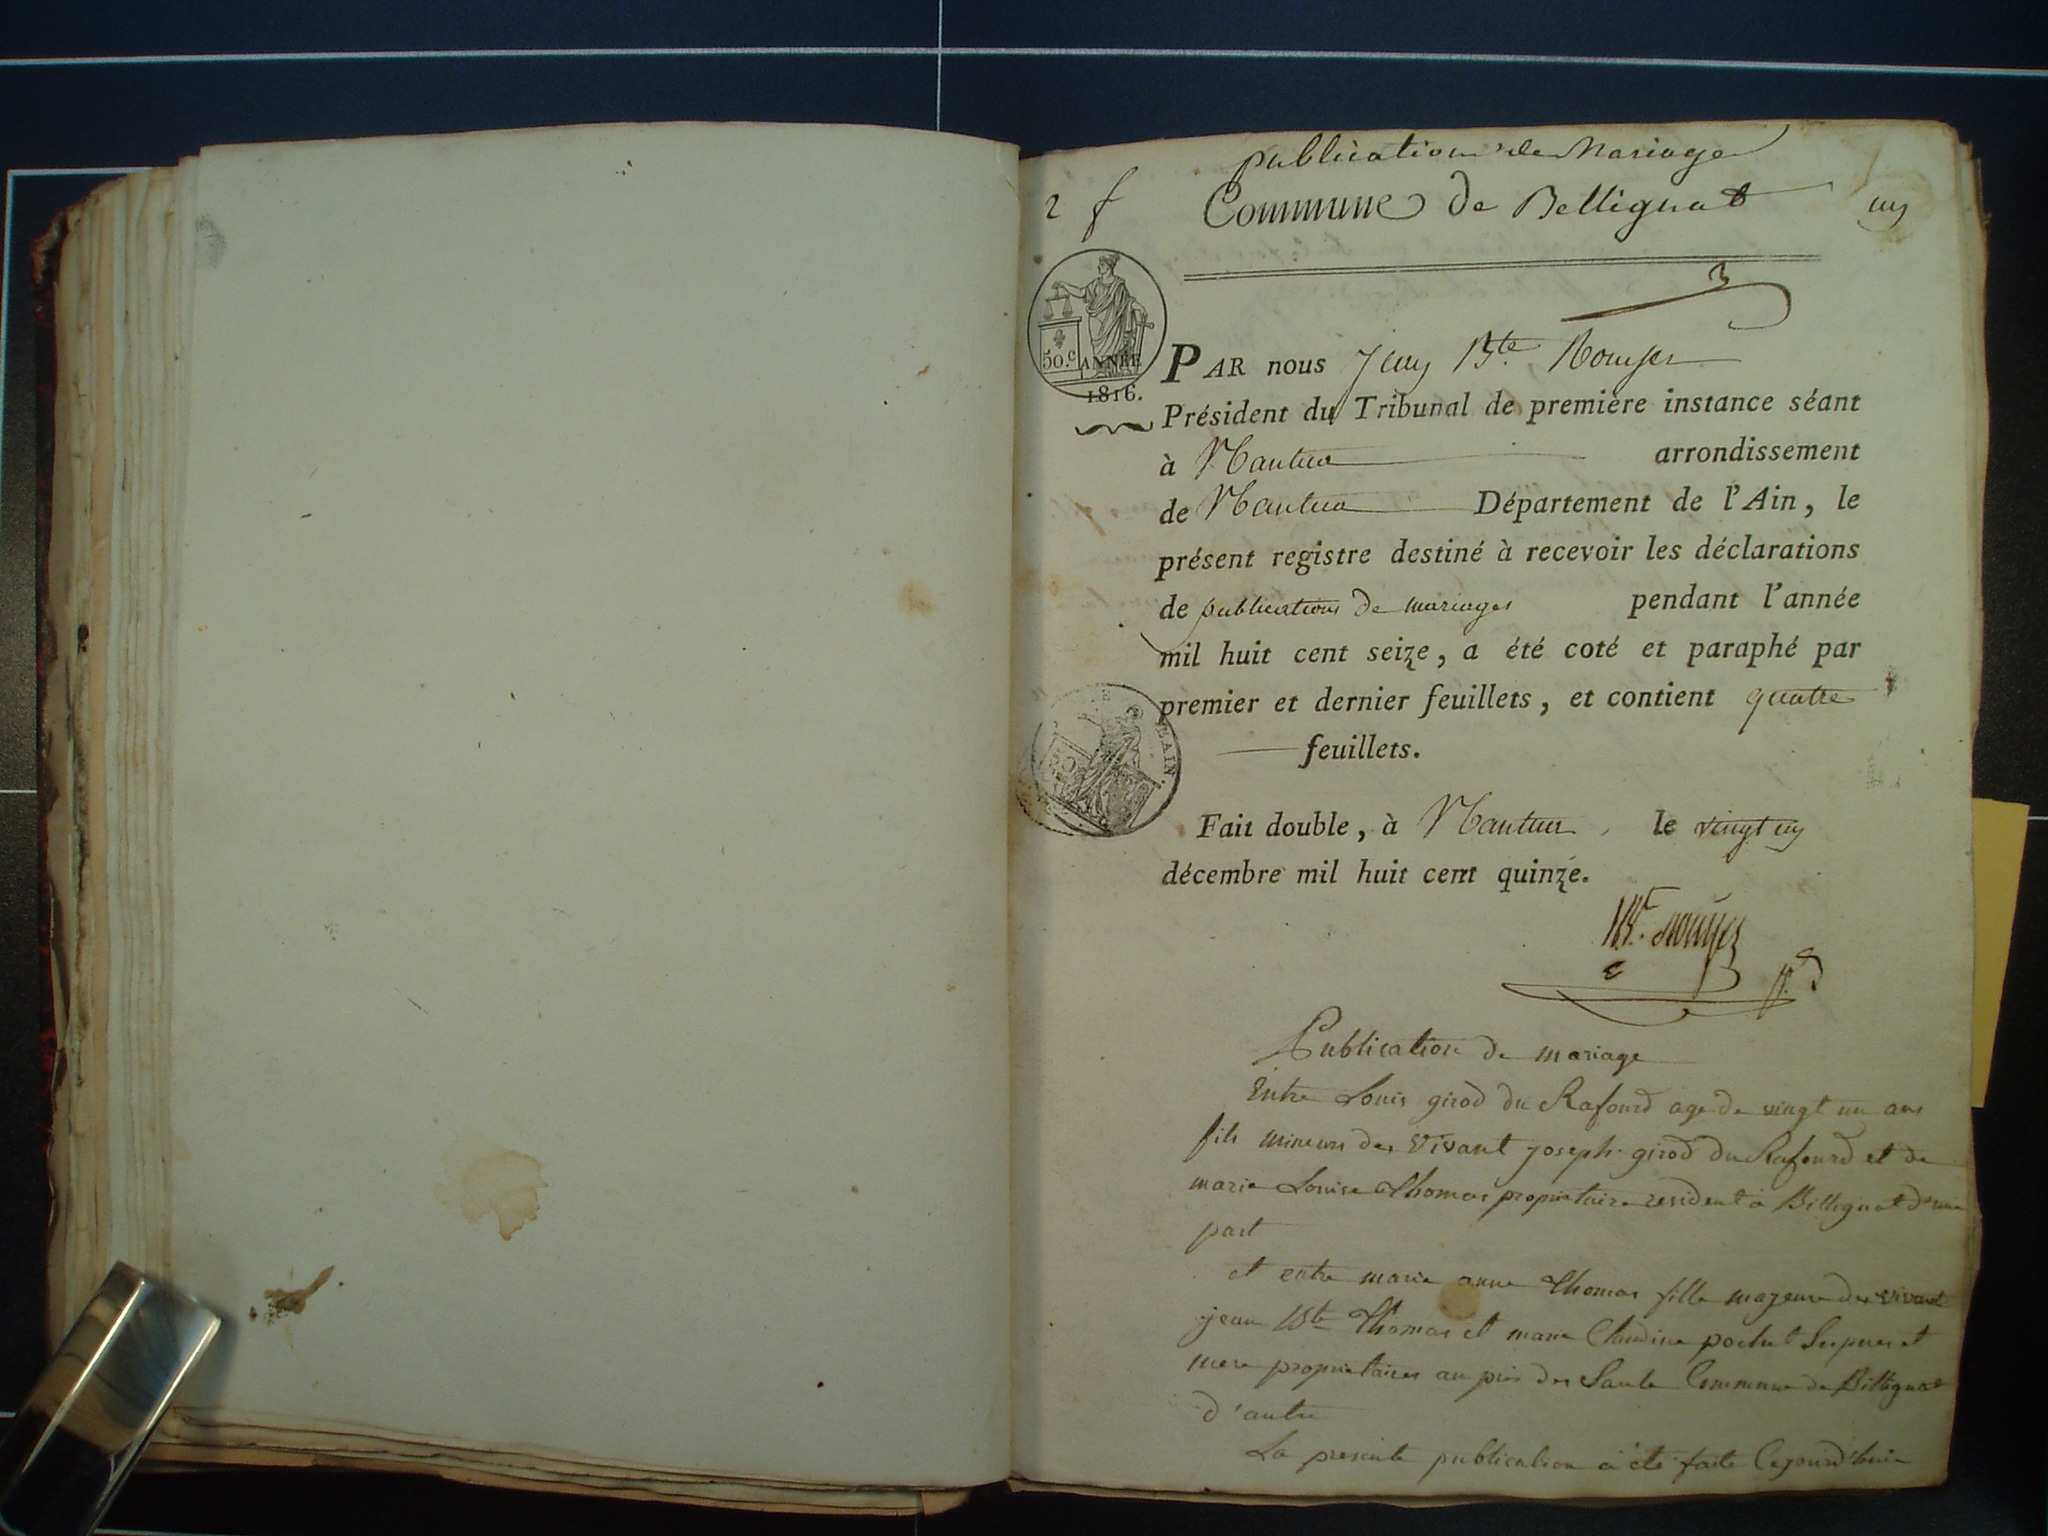 publication de Mariage
2 f Commune de Bellignat un
50.c ANNÉE
1816.
PAR nous Jean Bte. Rouyer
Président du Tribunal de première instance séant
à Nantua arrondissement
de Nantua Département de l'Ain, le
présent registre destiné à recevoir les déclarations
de publications de mariages pendant l'année
mil huit cent seize, a été coté et paraphé par
premier et dernier feuillets, et contient quatre
feuillets.
AIN.
50
Fait double, à Nantua, le vingt un
décembre mil huit cent quinze.
Rouyer
Publication de mariage
Entre Louis girod du Rafourd age de vingt un ans
fils mineur des vivant joseph girod du Rafourd et de
marie Louise Thomas proprietaire resident à Billignat d'une
part
et entre marie anne Thomas fille majeure des vivant
jean Bte Thomas et marie Claudine pochet Ses pere et
mere proprietaires au prés des Saule Commune de Billignat
d'autre
La presente publication a été faite Cejourd'huie